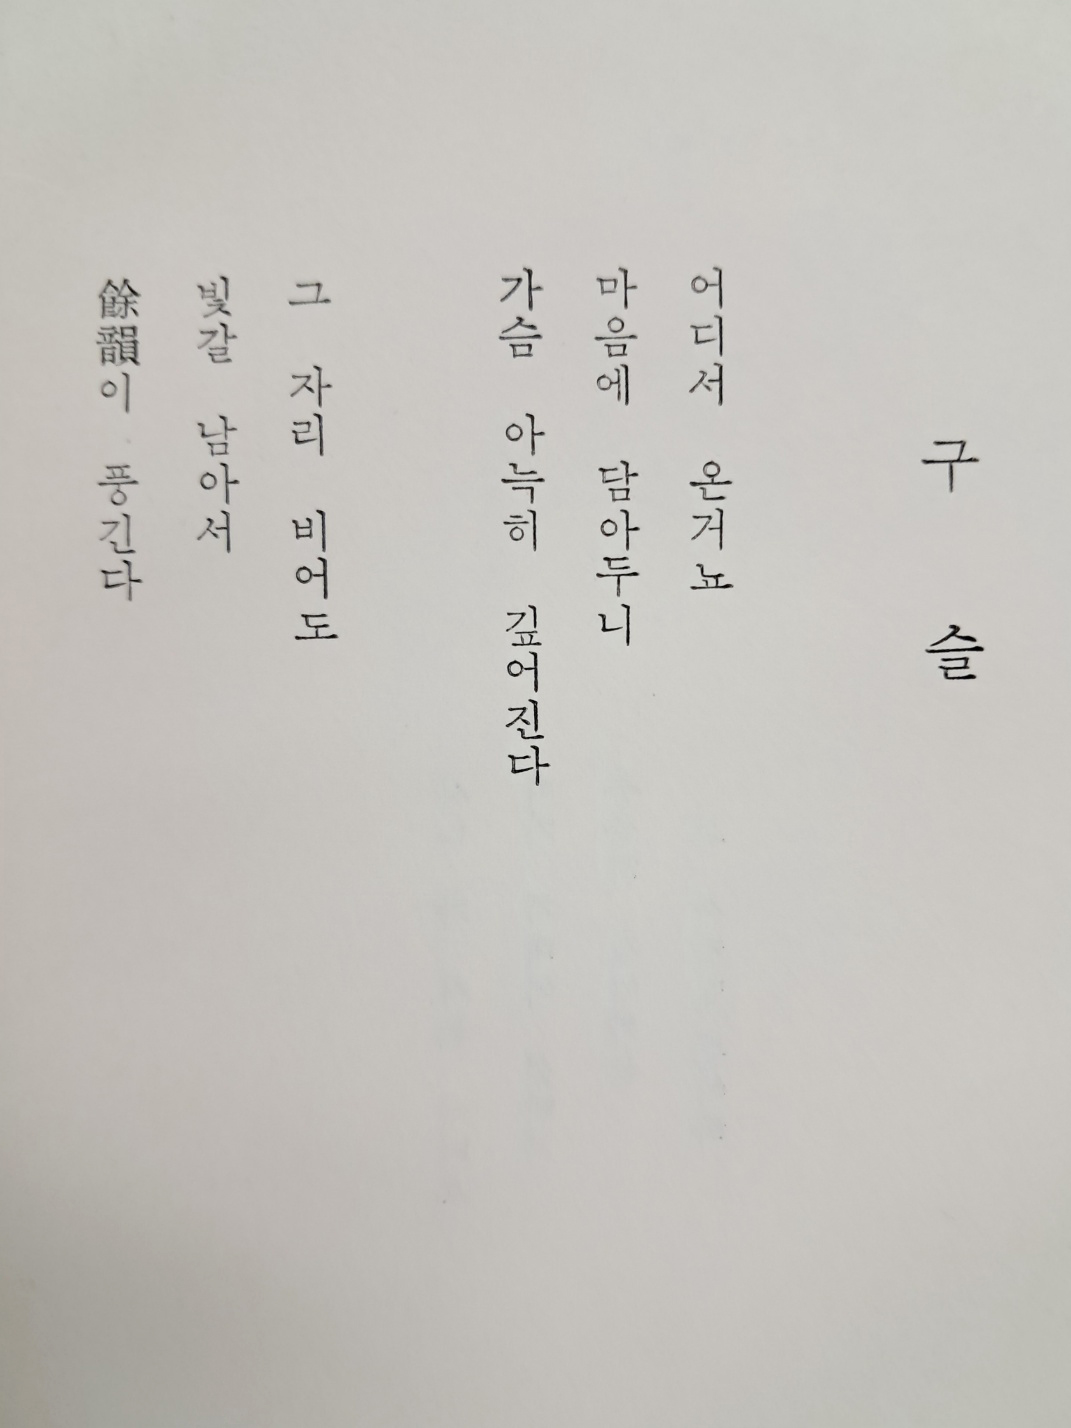 구슬
어디서 온거뇨
마음에 담아두니
가슴 아늑히 깊어진다
그 자리 비어도
빛갈 남아서
餘韻이 풍긴다